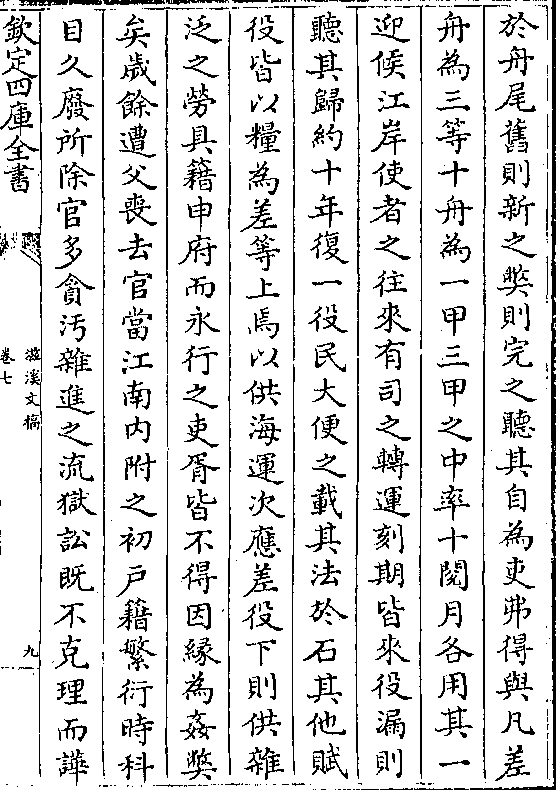 於舟尾舊則新之弊則完之聽其自為吏弗得與凡差
舟為三等十舟為一甲三甲之中率十閱月各用其一
迎候江岸使者之往來有司之轉運刻期皆來役漏則
聽其歸約十年復一役民大便之載其法於石其他賦
役皆以糧為差等上焉以供海運次應差役下則供雜
泛之勞具籍申府而永行之吏胥皆不得因緣為姦弊
矣歲餘遭父喪去官當江南内附之初戸籍繁衍時料
目久廢所除官多貪汚雜進之流獄訟既不克理而譁
欽定四庫全書
滋溪文稿
卷七
九